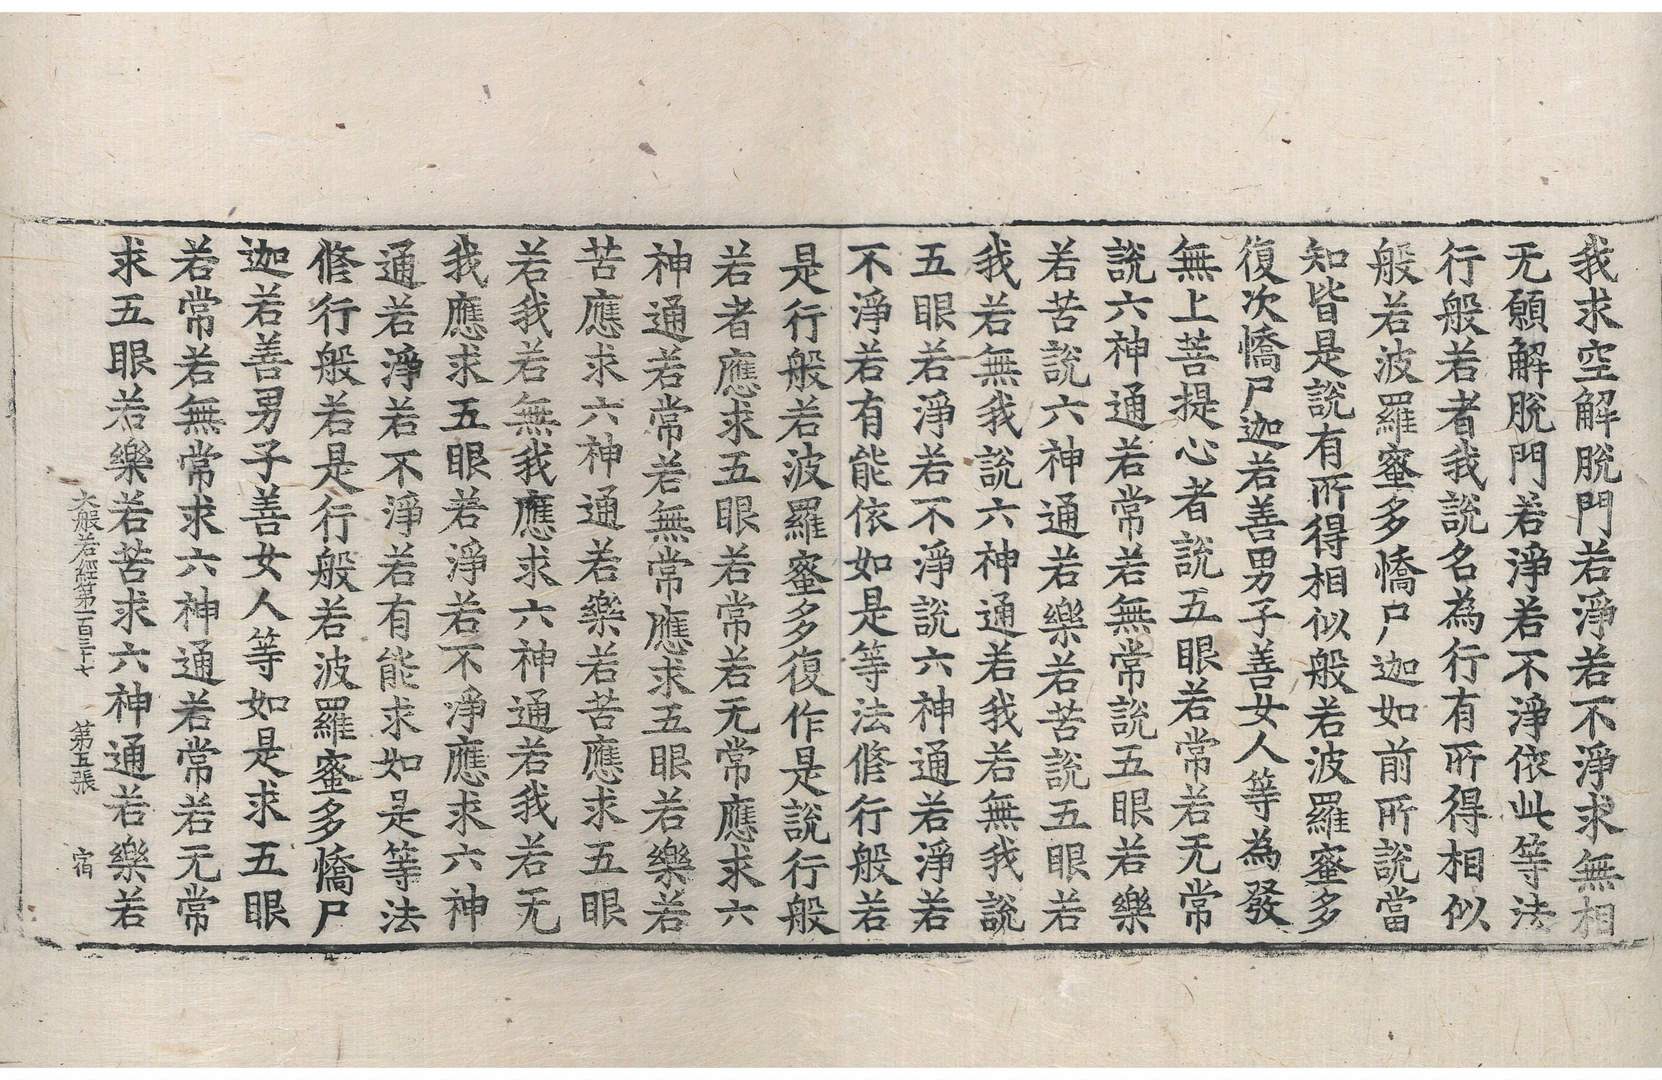 我求空解脫門若淨若不淨求無相
无願解脫門若淨若不淨依此等法
行般若者我說名為行有所得相似
般若波羅蜜多憍尸迦如前所說當
知皆是說有所得相似般若波羅蜜多
復次憍尸迦若善男子善女人等為發
無上菩提心者說五眼若常若无常
說六神通若常若無常說五眼若樂
若苦說六神通若樂若苦說五眼若
我若無我說六神通若我若無我說
五眼若淨若不淨說六神通若淨若
不淨若有能依如是等法修行般若
是行般若波羅蜜多復作是說行般
若者應求五眼若常若无常應求六
神通若常若無常應求五眼若樂若
苦應求六神通若樂若苦應求五眼
若我若無我應求六神通若我若无
我應求五眼若淨若不淨應求六神
通若淨若不淨若有能求如是等法
修行般若是行般若波羅蜜多憍尸
迦若善男子善女人等如是求五眼
若常若無常求六神通若常若无常
求五眼若樂若苦求六神通若樂若
大般若經第一百三十七 第五張 宿